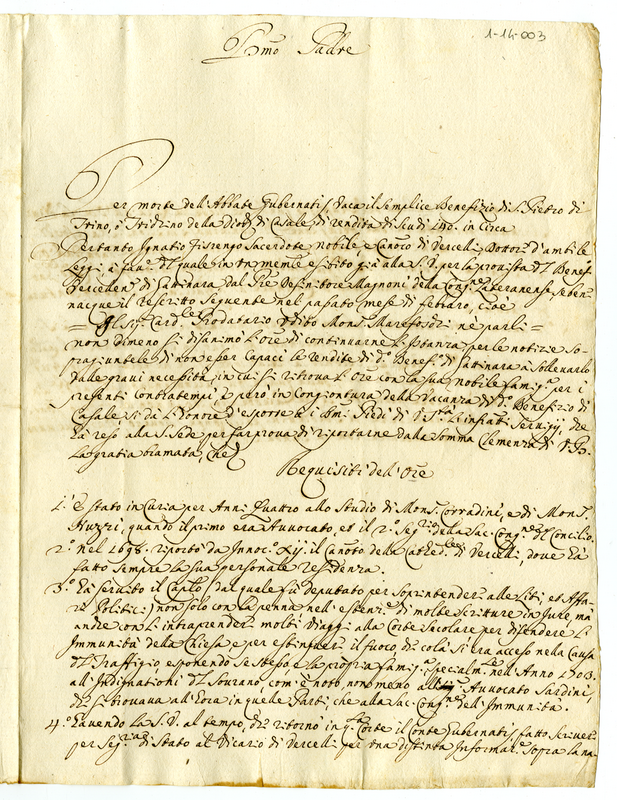 1-14-003
Bmo Padre
Per morte dell'Abbate Gubernatis vaca il semplice Benefizio di S. Pietro di
Trino, ò Tridino della Dioc.i di Casale, di rendita di Scudi 140. in circa
Pertanto Ignatio Fisrengo Sacerdote nobile, e Canoco di Vercelli Dottore d'ambe le
Leggi, à fav.e del quale in tre memie esibito già alla S.V. per la provista del Benef.o
Precedente di Gattinara dal Pre Definitore Magnoni della Cong.e Lateranense, se ben
nacque il rescritto seguente nel passato mese di Febraro, cioè
= Al Sig.r Card.le Prodatario udito Mons.r Marefoschi ne parli =
non dimeno si disanimò l'Ore di continuarne l'istanza per le notizie so=
pragiuntele di non esser capaci le rendite di d.o Benef.o di Gattinara à sollevarlo
dalle gravi necessità, in cui si ritrova l'Ore con la sua nobile famig.a per i
presenti contratempi, è però in congiontura della vacanza di d.o Benefizio di
Casale, si dà l'onore d'esporre à i Smi Piedi di V. S.tà l'infratti servigij, che
hà reso alla S. Sede per far prova di riportarne dalla somma clemenza di V. B.
La gratia bramata, che
Requisiti dell'Ore
1.o è stato in Curia per Anni quattro allo studio di Mons.r Corradini, e di Mons.r
Nuzzi, quando il primo era Avvocato et il 2.o Seg.rio della Sac. Cong.ne del Concilio.
2.o nel 1698. riportò da Innoc.o XII. il Canoto della Cathed.le di Vercelli, dove hà
fatto sempre la sua personale residenza.
3.o Hà servito il Caplo, dal quale fù deputato per soprintender alle Liti, et Affa=
ri Politici, non solo con la penna nell'estender di molte scritture in Jure, mà
anche con l'intraprender molti viaggi alla Corte Secolare per difendere l'
Immunità della Chiesa e per estinguer il fuoco che colà si era acceso nella Causa
del Traffigio, esponendo se stesso e la propria famig.a specialm.te nell'Anno 1703.
all'Indignationi del Sovrano, com'è noto non meno all' Avvocato Sardini
che si trovava all'hora in quelle Parti, che alla Sac. Cong.ne dell'Immunità.
4.o Havendo La S.V. al tempo, che ritornò in q.ta Corte il Conte Gubernatis fatto scriver
per Seg.ria di Stato al Vicario di Vercelli per una distinta Informat.e sopra la na=